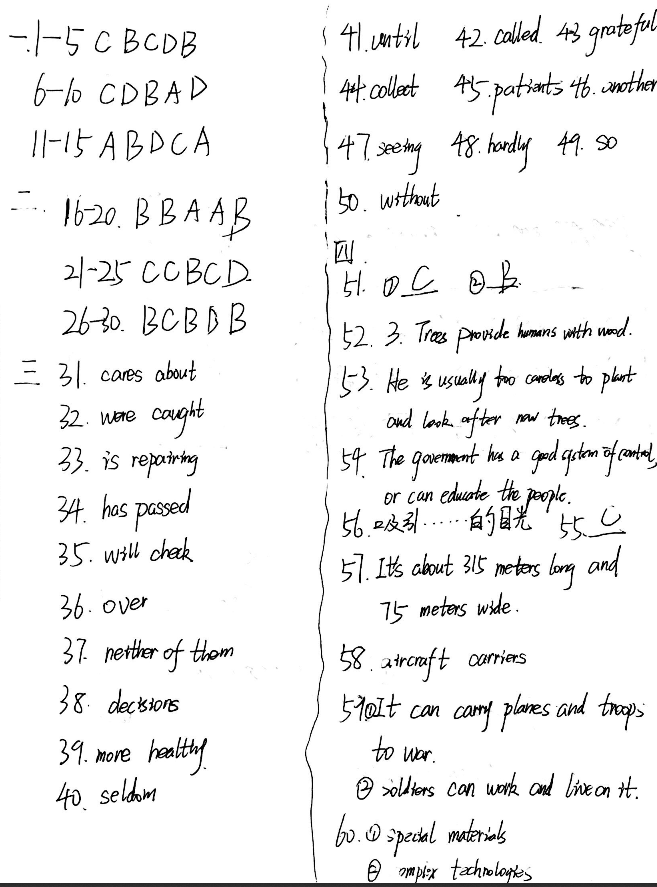 一.1-5 C B C D B
6-10 C D B A D
11-15 A B D C A
二. 16-20. B B A A B
21-25 C C B C D.
26-30. B C B D B
三 31. cares about
32. were caught
33. is repairing
34. has passed
35. will check
36. over
37. neither of them
38. decisions
39. more healthy
40. seldom
41. until 42. called. 43 grateful
44. collect 45. patients 46. another
47. seeing 48. hardly 49. so
50. without
四.
51. ① C ② B
52. 3. Trees provide humans with wood.
53. He is usually too careless to plant
and look after new trees.
54. The goverment has a good system of control,
or can educate the people.
56. 吸引……的目光 55. C
57. It's about 315 meters long and
75 meters wide.
58. aircraft carriers
59.①It can carry planes and troops
to war.
② soldiers can work and live on it.
60. ① special materials
② omplex technologies